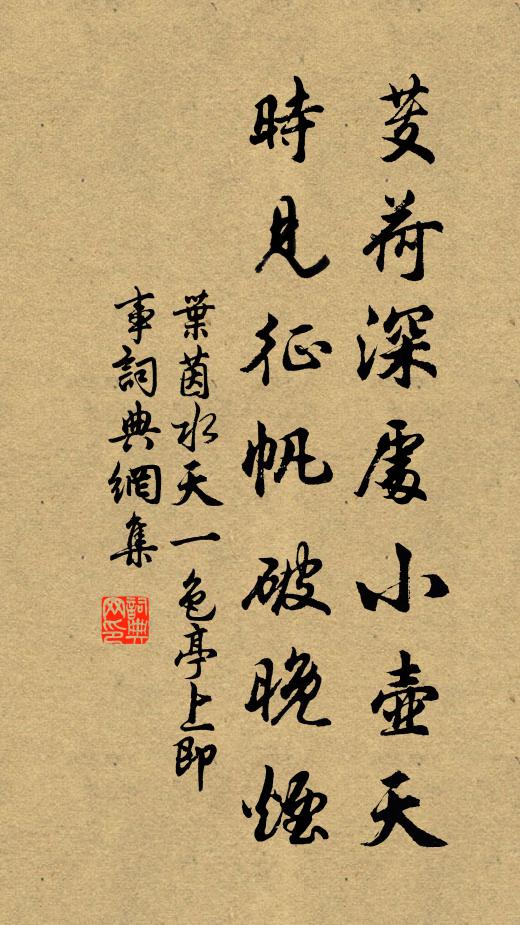 芰荷深處小壺天
時見征帆破晚煙
葉茵水天一色亭上即
事詞典網集
詞典網印